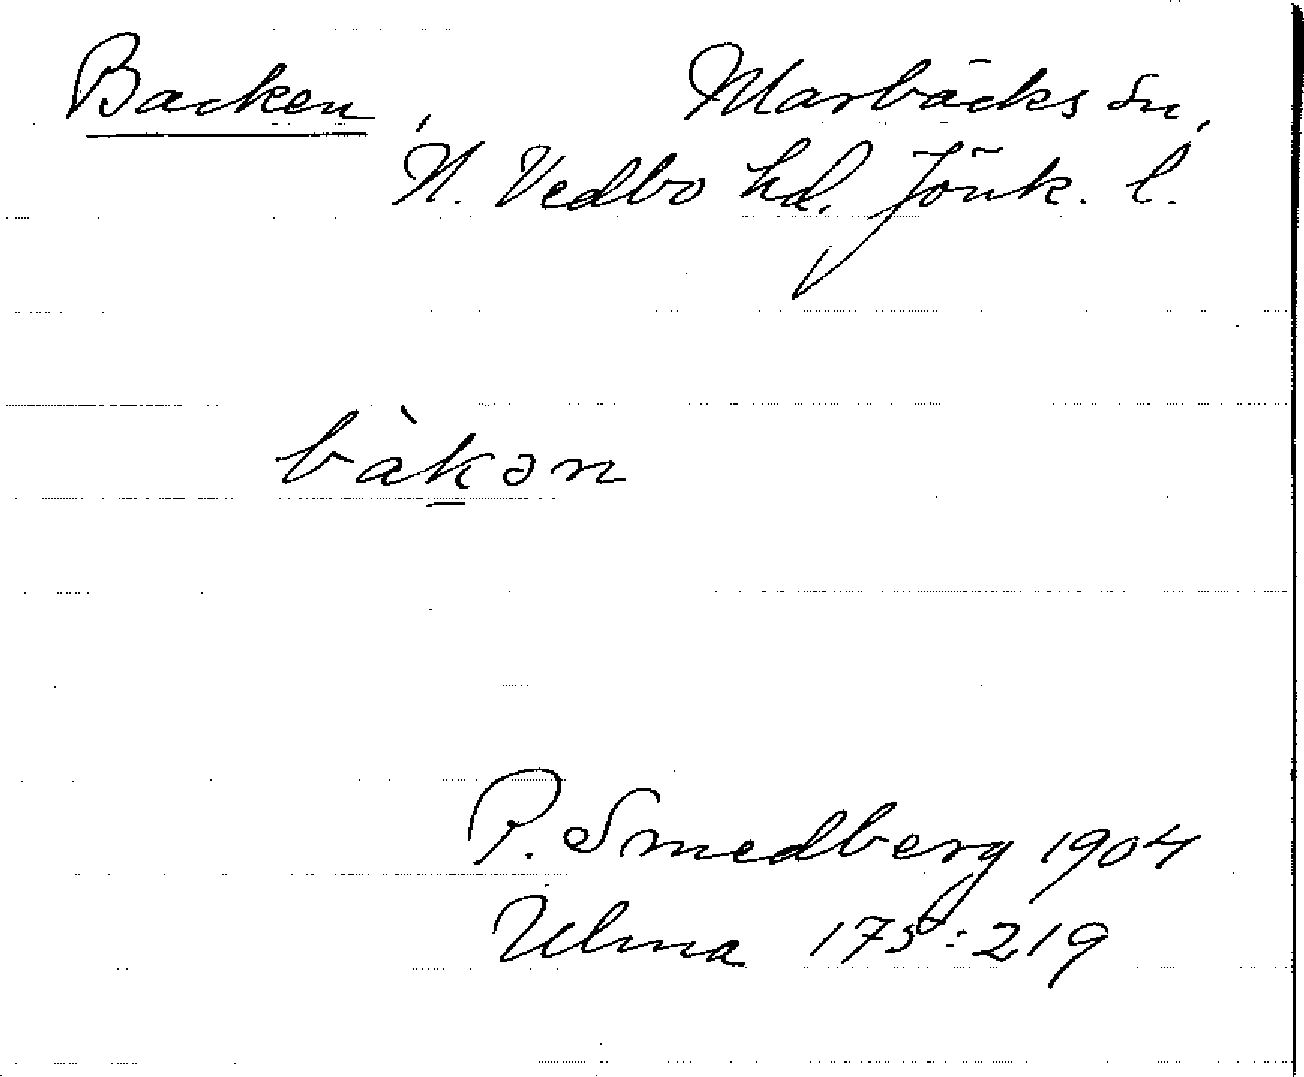 Backen, Marbäcks sn,
N. Vedbo hd. Jönk. l.
bàk̲ən
P. Smedberg 1904
Ulma 175:219